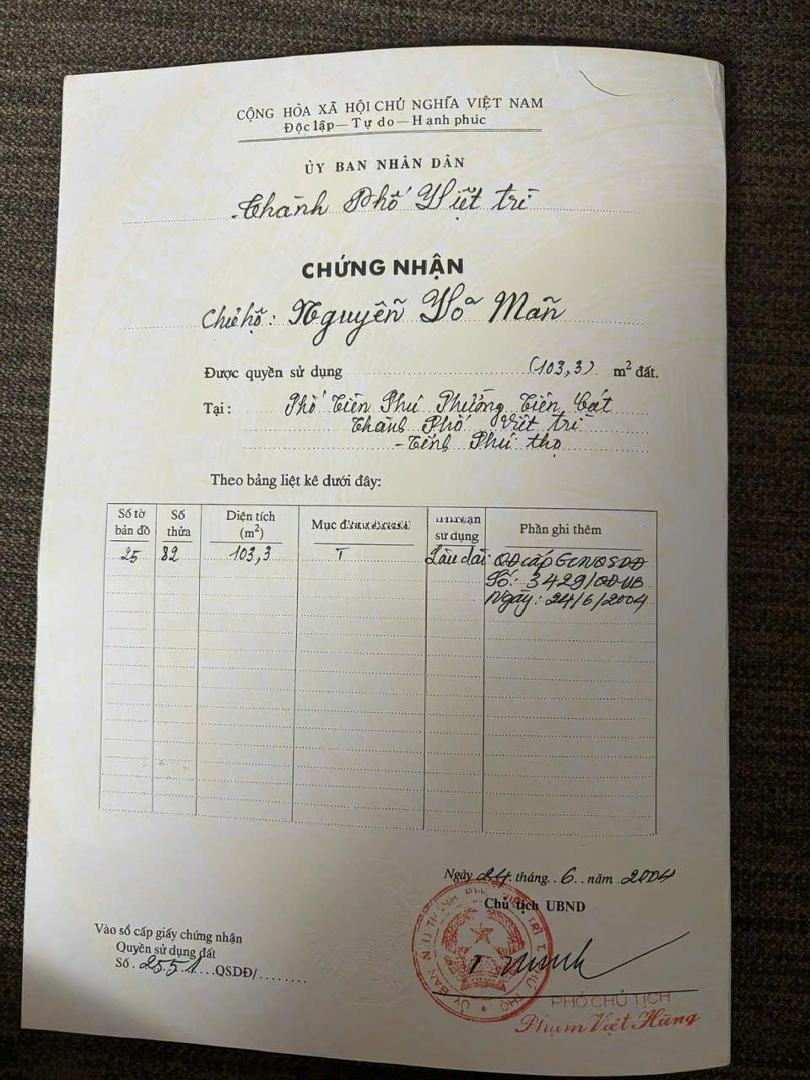 CỘNG HÒA XÃ HỘI CHỦ NGHĨA VIỆT NAM
Độc lập — Tự do — Hạnh phúc
ỦY BAN NHÂN DÂN
Thành Phố Việt trì
CHỨNG NHẬN
Chủ hộ: Nguyễn Võ Mãn
Được quyền sử dụng (103,3) m² đất.
Tại: Phố Tiên Phú Phường Tiên Cát
Thành Phố Việt trì
- Tỉnh Phú thọ
Theo bảng liệt kê dưới đây:
Số tờ bản đồ Số thửa Diện tích (m²) Mục sử dụng Phần ghi thêm
25 82 103,3 T Lâu dài QĐ cấp GCNQSDĐ
Số: 3429/QĐ-UB
Ngày: 24/6/2004
Ngày 24 tháng 6 năm 2004
Chủ tịch UBND
Vào sổ cấp giấy chứng nhận
Quyền sử dụng đất
Số 2551 QSDĐ/
PHÓ CHỦ TỊCH
Phạm Việt Hùng